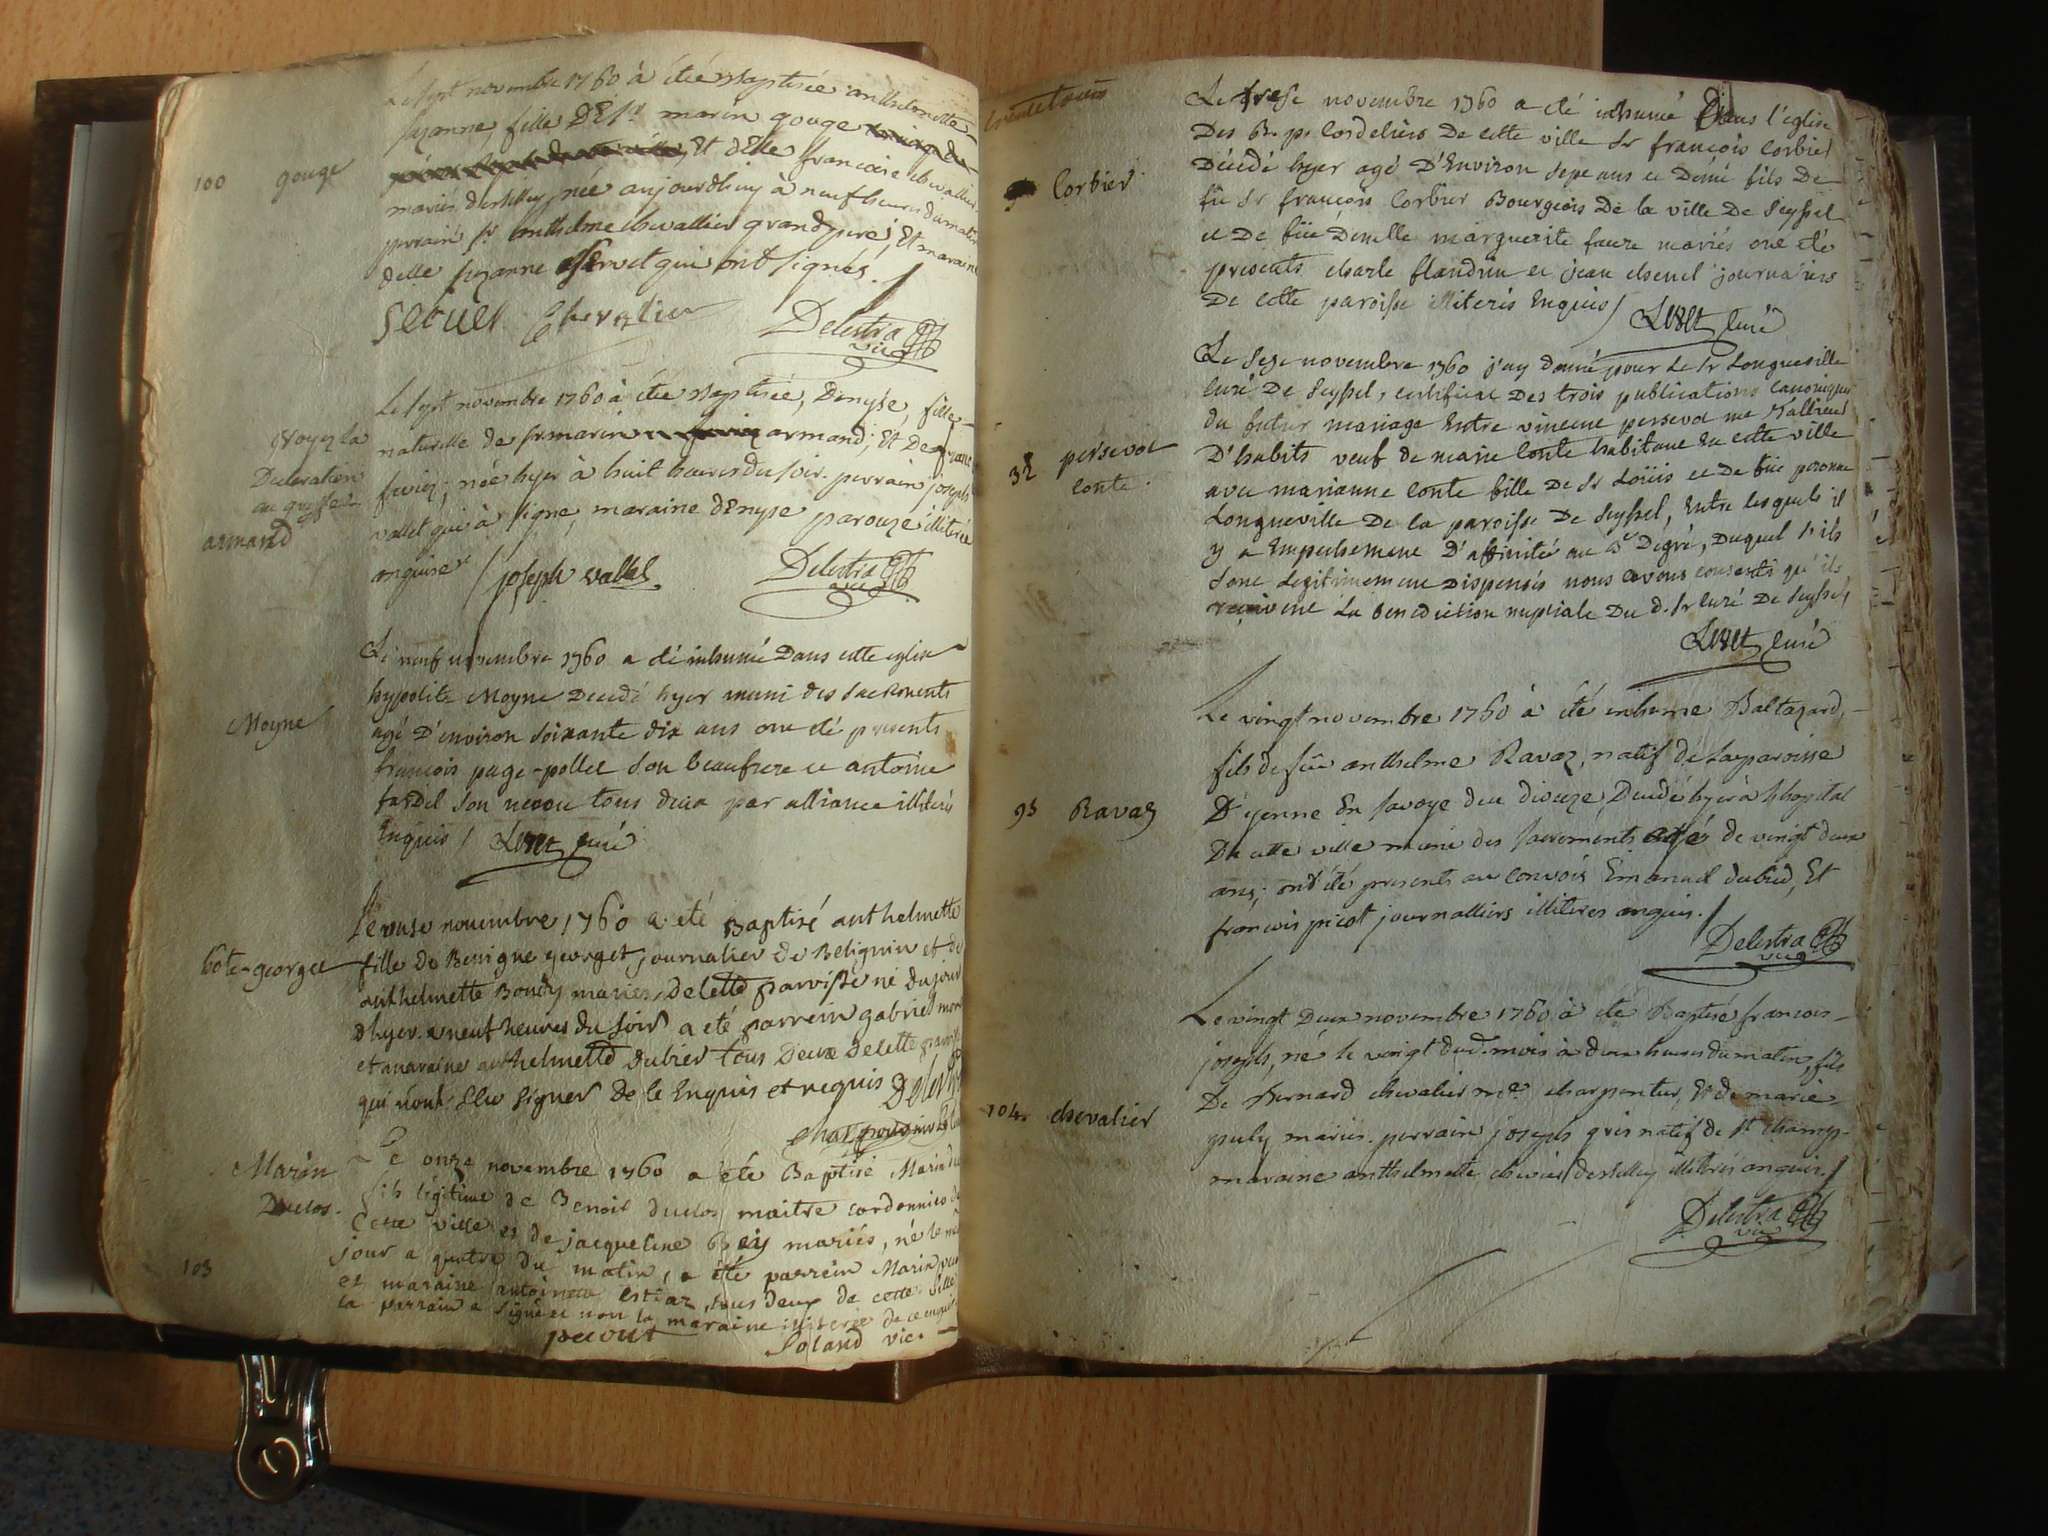 Le sept novembre 1760 à étée Baptisée anthelmette
suzanne, fille DE Sr marin gouge
Et delle francoise chevallier
100 gouge
mariés née aujourdhuy à neuf heures du matin
perrain sr anthelme chevallier grand pere, Et maraine
delle suzanne qui ont signés.
Chevalier
Delestra vic
Le sept novembre 1760 à étée Baptisée, Denyse, fille
Voyez la Declaration au greffe
armand
naturelle de sr marin armand; Et De franc
née hyer à huit heures du soir. perrain joseph
vallet qui à signe, maraine dEnyse parouze illiterée
enquise
joseph vallet
Delestra vic
Le neuf novembre 1760 a été inhumé Dans cette eglise
Moyne
hypolite Moyne Decedé hyer muni des sacrements
agé D'environ soixante dix ans ont été presents
francois page-pollet son beaufrere et antoine
fardel son neveu tous deux par alliance illiterés
Enquis / curé
Le onse novembre 1760 a été Baptisé anthelmette
georget
fille de Benigne georget journalier de Belignin et de
anthelmette Bondy mariés, de cette parroisse né du jour
dhyer a neuf heures du soir a été parrein gabriel
et maraine anthelmette dubier tous Deux De cette
qui n'ont sceu signer De ce Enquis et requis
Le onze novembre 1760 a été Baptisé Marin
Marin Duclos.
fils légitime de Benoit duclos maitre cordonnier de
Cette ville et de jacqueline Bey mariés, né le
jour a quatre du matin, a été parrein Marin
et maraine antoinette, tous deux de cette ville
103
le parrain a signé et non la maraine illiterée de ce enquis
Soland vic.
Le trese novembre 1760 a été inhumé Dans l'église
Des Rr. pr. Cordeliers De cette ville Sr françois Corbier
Corbier
Décedé hyer agé D'Environ sept ans et Demi fils De
fû Sr françois Corbier Bourgeois De la ville De Seyssel
et De fûe Demelle marguerite faure mariés ont été
presents charle flandrin et jean chenel journaliers
De cette paroisse illiterés Enquis / curé
Le Seze novembre 1760 j'ay donné pour Le Sr Longueville
curé De Seyssel, certificat Des trois publications canoniques
du futur mariage Entre vincent persevot me Tallieur
32 persevot conte.
D'habits veuf de marie Conte habitant En cette ville
avec marianne Conte fille De Sr Loüis et De fûe peronne
Longueville De la paroisse De Seyssel, Entre lesquels il
y a Empechement D'affinité au Degré, Duquel s'ils
sont Legitimement Dispensés nous avons consenti qu'ils
reçoivent La benediction nuptiale Du d. Sr curé De Seyssel,
curé
Le vingt novembre 1760 à été inhumé Baltazard,
fils de fûe anthelme Ravaz, natif de la paroisse
93 Ravaz
D'yenne En Savoye Decedé hyer à l'hopital
De cette ville muni des sacrements agé de vingt deux
ans; ont été presents au convois Emanuel dubied, Et
francois picot journalliers illiteres enquis.
Delestra vic
Le vingt Deux novembre 1760 à été Baptisé francois
joseph, né le vingt dud. mois à deux heures du matin, fils
104. chevalier
De Bernard chevalier me charpentier, Et de marie
puly mariés. perrain joseph gris natif de St Champ
maraine anthelmette illiterés enquis.
Delestra vic